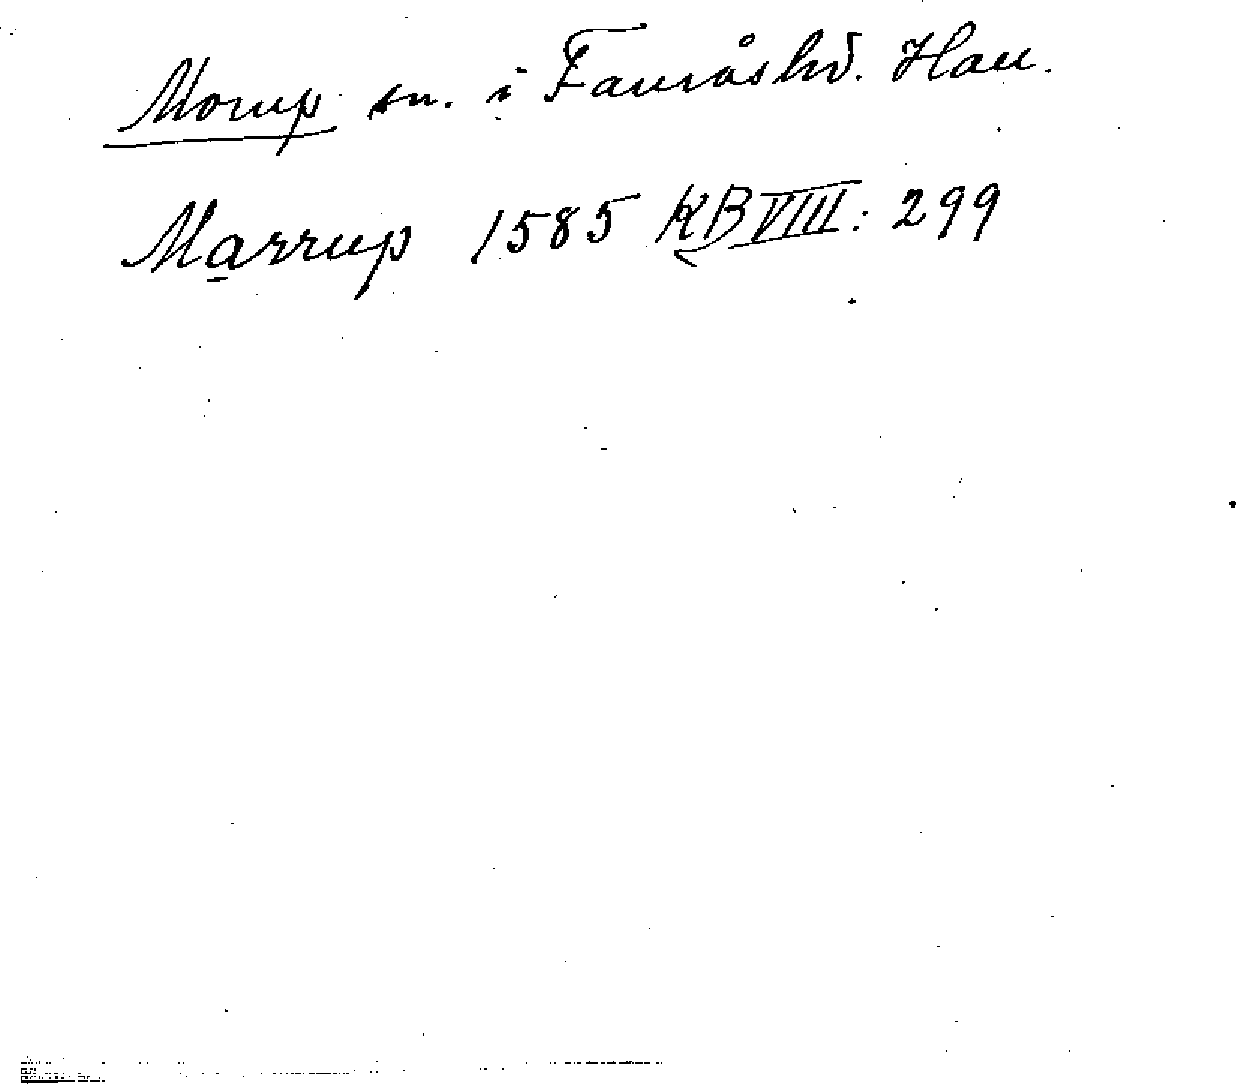 Morup sn. i Fauråshd. Hall.
Marrup 1585 KB VIII: 299